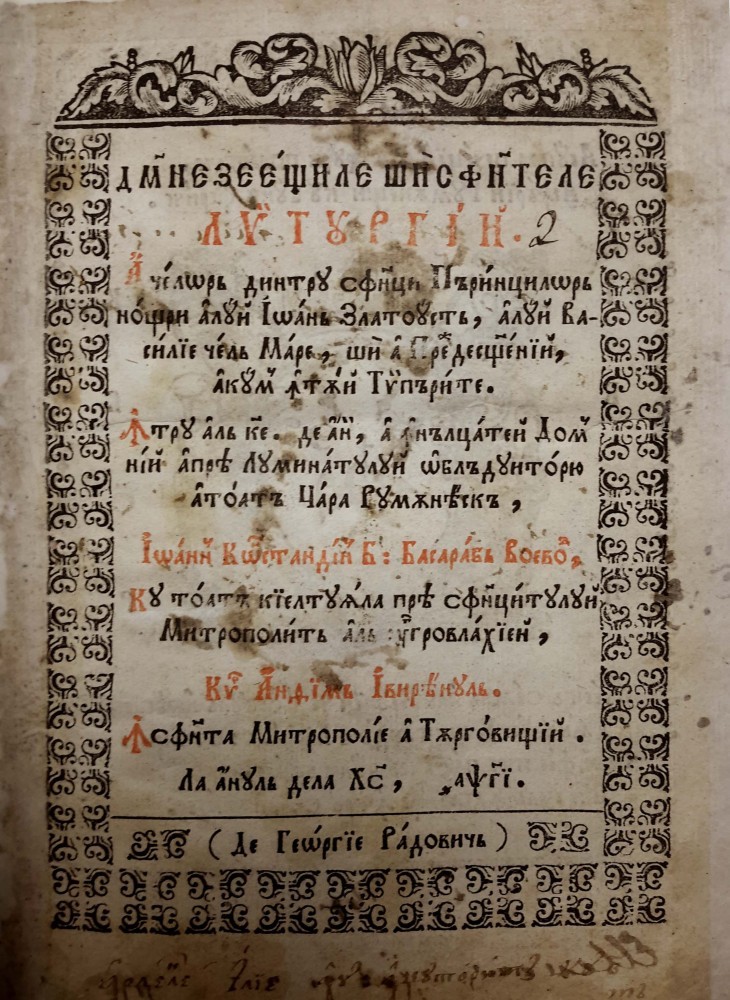 ДМ҃НЕЗЕЕ́ЩИЛЕ ШЍ СФИ҃ТЕЛЕ
ЛӰТꙊРГІ́Й. 2
А҆ че́лѡрь динтру сфи҃ци Пъринцилѡрь
но́щри а҆лу́й Іѡа́нь Златоу́сть, а҆лу́й Ва-
си́лїе че́ль Ма́ре, шѝ а҆ Преⷤдесщ҃е́нїй,
а҆кꙋ́мⷨ ꙟтѫ́й Тѷпъри́те.
Ꙟтру а҆ль к҃е. де а҆́нй, а҆ ꙟнълца́тей Домⷨ
ні́й а҆прѣ̀ Лумина́тулуй ѡ҆блъдуито́рю
а҆тоа́тъ Ца́ра Румѫнѣ́скъ,
Іѡа́нн Кѡⷭ҇танді́н Б: Басара́бь Воево́ⷣ,
Ку то́атъ кїелтуѧ́ла прѣ̀ сфи҃ци́тулуй
Митрополи́ть а҆́ль ᲂу҆гровлахі́ей,
Кӱⷬ Анѳі́мь Іви́рѣнуль.
Ꙟ сфи҃та Митропо́лїе а҆ Тѫрго́вищїй.
Ла а҆́нуль дела Хс҃, ҂аѱ҃гі.
(Де Геѡ́ргїе Ра́довичь)